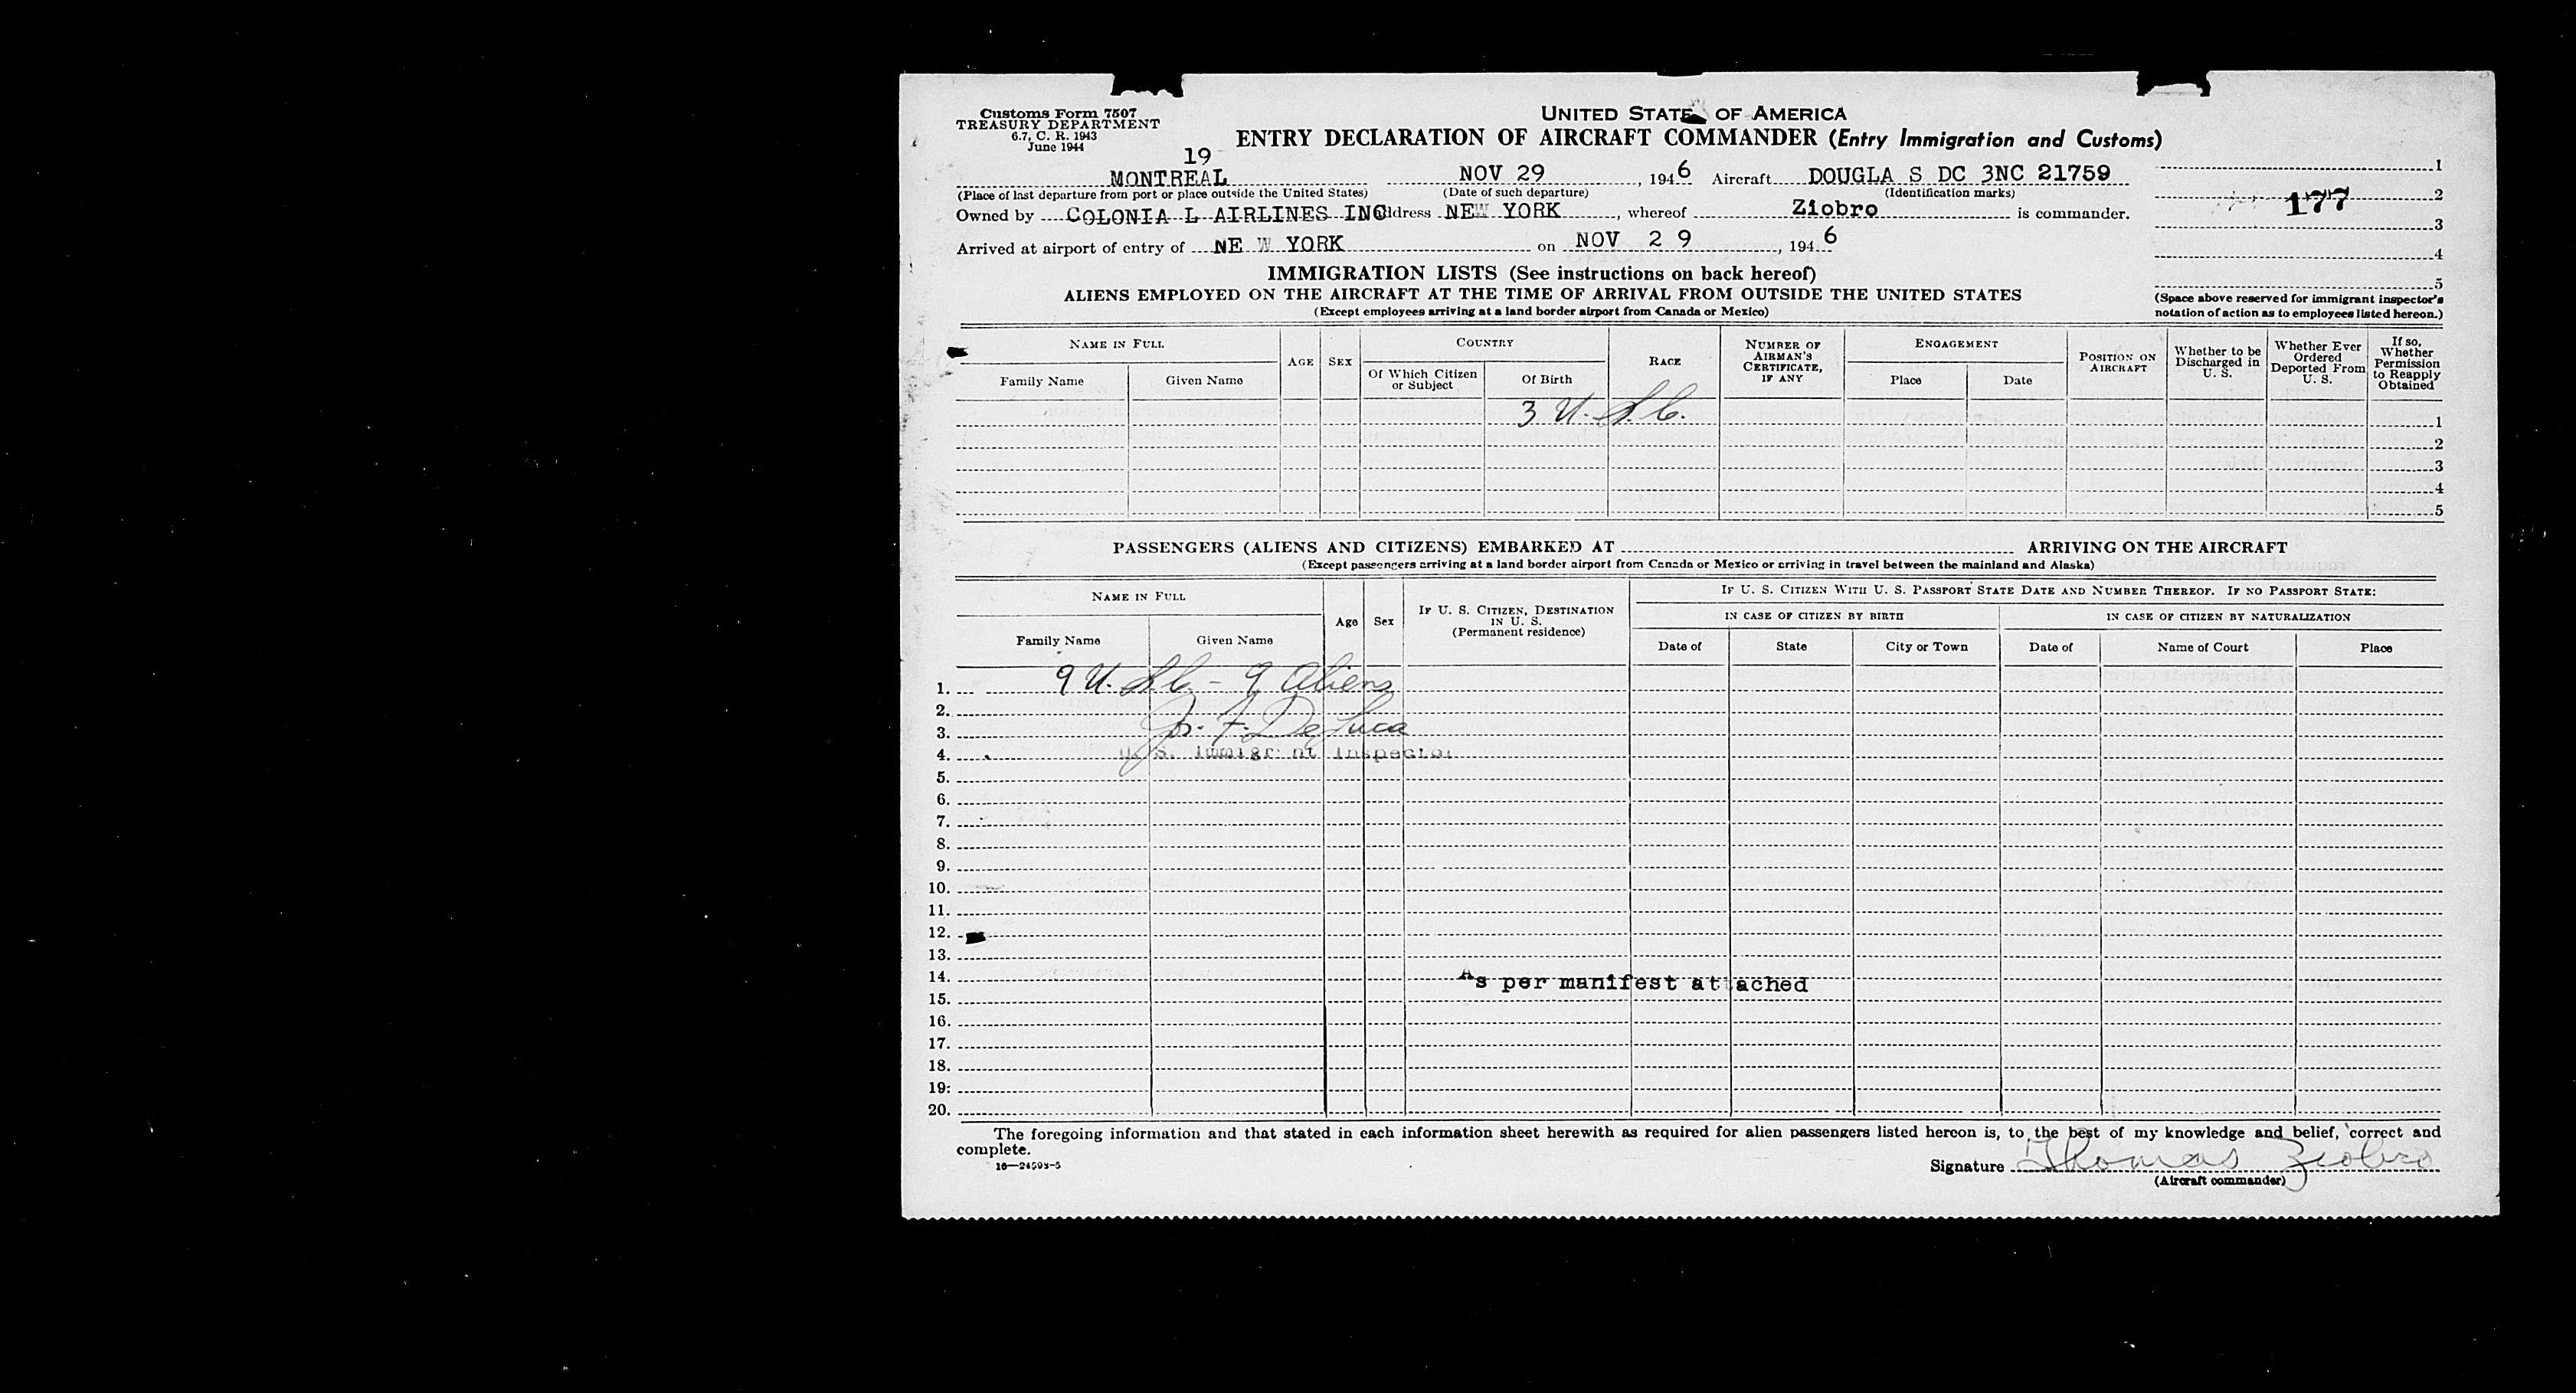 Customs Form 7507
TREASURY DEPARTMENT
6.7, C. R. 1943
June 1944
UNITED STATE OF AMERICA
ENTRY DECLARATION OF AIRCRAFT COMMANDER (Entry Immigration and Customs)
19
MONTREAL NOV 29, 1946 Aircraft DOUGLA S DC 3NC 21759
(Place of last departure from port or place outside the United States) (Date of such departure) (Identification marks)
Owned by COLONIA L AIRLINES INC ddress NEW YORK, whereof Ziobro is commander.
Arrived at airport of entry of NE W YORK on NOV 2 9, 1946
1
2
177
3
4
5
(Space above reserved for immigrant inspector's
notation of action as to employees listed hereon.)
IMMIGRATION LISTS (See instructions on back hereof)
ALIENS EMPLOYED ON THE AIRCRAFT AT THE TIME OF ARRIVAL FROM OUTSIDE THE UNITED STATES
(Except employees arriving at a land border airport from Canada or Mexico)
NAME IN FULL
Family Name Given Name
AGE SEX
COUNTRY
Of Which Citizen or Subject Of Birth
RACE
NUMBER OF AIRMAN'S CERTIFICATE, IF ANY
ENGAGEMENT
Place Date
POSITION ON AIRCRAFT
Whether to be Discharged in U. S.
Whether Ever Ordered Deported From U. S.
If so, Whether Permission to Reapply Obtained
3 U.S.C.
1
2
3
4
5
PASSENGERS (ALIENS AND CITIZENS) EMBARKED AT ARRIVING ON THE AIRCRAFT
(Except passengers arriving at a land border airport from Canada or Mexico or arriving in travel between the mainland and Alaska)
NAME IN FULL
Family Name Given Name
Age Sex
IF U. S. CITIZEN, DESTINATION IN U. S.
(Permanent residence)
IF U. S. CITIZEN WITH U. S. PASSPORT STATE DATE AND NUMBER THEREOF. IF NO PASSPORT STATE:
IN CASE OF CITIZEN BY BIRTH IN CASE OF CITIZEN BY NATURALIZATION
Date of State City or Town Date of Name of Court Place
1. 9 U.S.C. - 9 Aliens
2.
3. Jos. F. DeLuca
4. U. S. Immigr nt Inspector
5.
6.
7.
8.
9.
10.
11.
12.
13.
14. As per manifest attached
15.
16.
17.
18.
19:
20.
The foregoing information and that stated in each information sheet herewith as required for alien passengers listed hereon is, to the best of my knowledge and belief, correct and
complete.
16—24593-5
Signature Thomas Ziobro
(Aircraft commander)